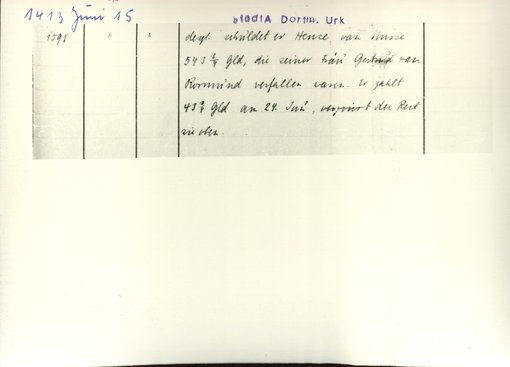 1413 Juni 15
StadtA Dortm. Urk
1595 " " desgl. schuldet er Hense van
543 ¾ Gld, die seiner Frau Gertrud van
Rormund verfallen waren. Er zahlt
43 ¾ Gld am 24. Juni, verzinst den Rest
wie oben.